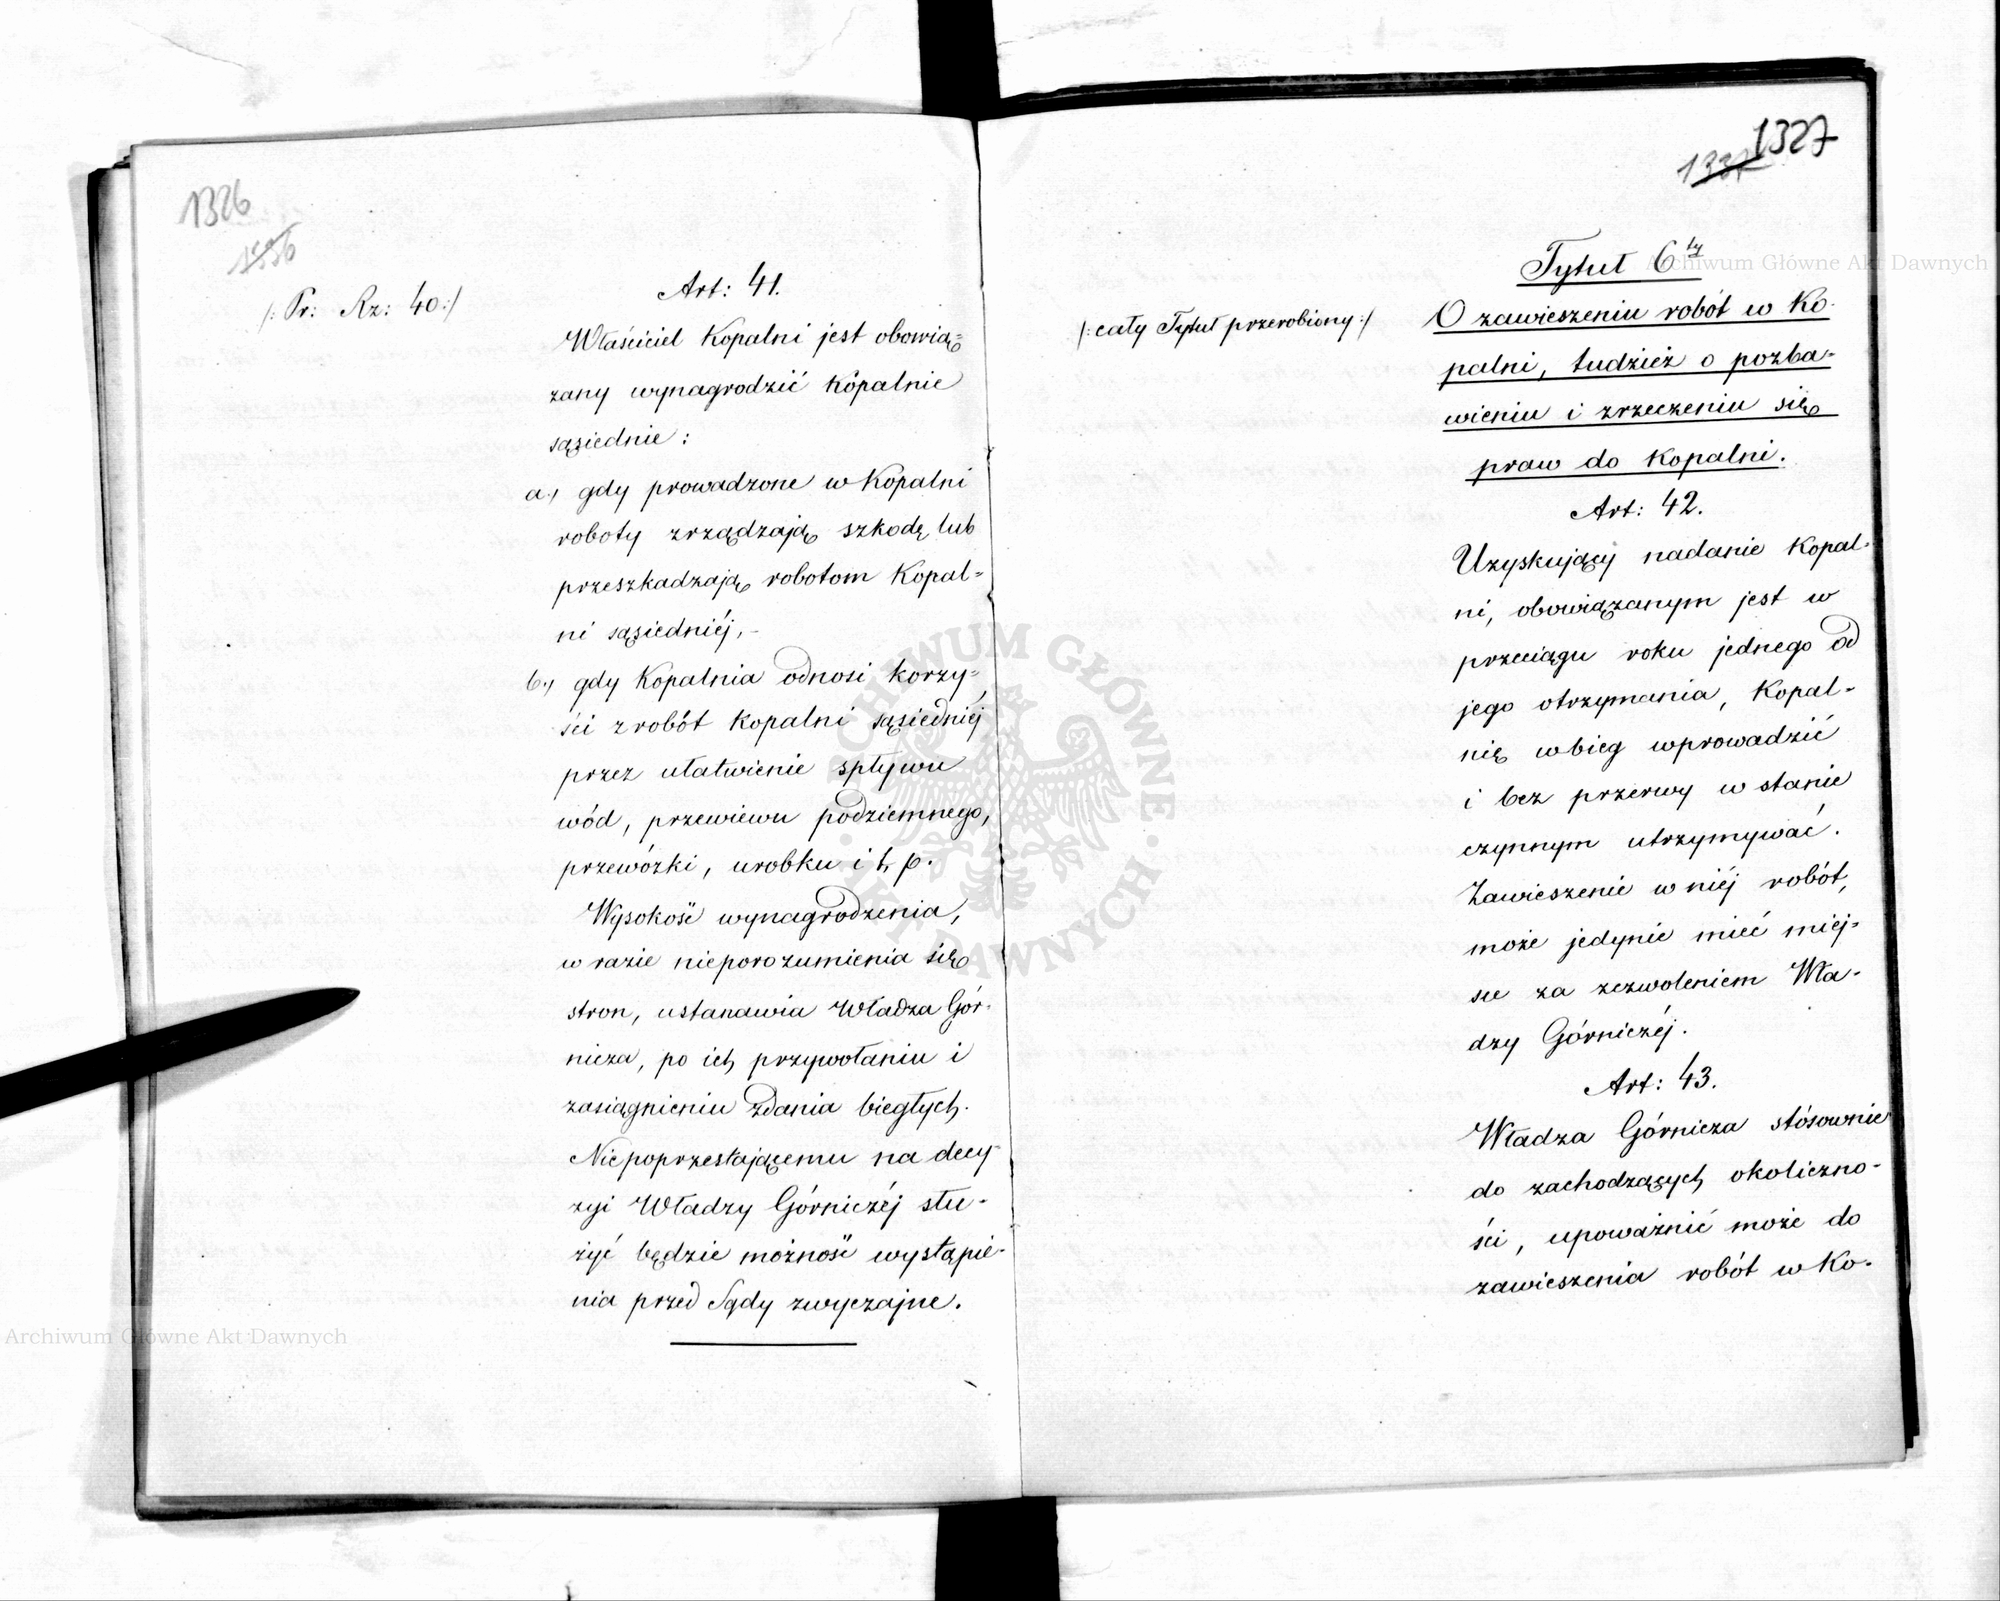 1326
1336
/: Pr: Rz: 40:/
Art: 41.
Właściciel Kopalni jest obowią=
zany wynagrodzić Kopalnie
sąsiednie:
a., gdy prowadzone w Kopalni
roboty zrządzają szkodę lub
przeszkadzają robotom Kopal=
ni sąsiedniéj,-
b., gdy Kopalnia odnosi korzy=
ści z robót Kopalni sąsiedniéj
przez ułatwienie spływu
wód, przewiewu podziemnego,
przewózki, urobku i t. p.
Wysokość wynagrodzenia,
w razie nieporozumienia się
stron, ustanawia Władza Gór-
nicza, po ich przywołaniu i
zasiągnieniu zdania biegłych.
Niepoprzestającemu na decy-
zyi Władzy Górniczéj słu-
żyć będzie możność wystąpie-
nia przed Sądy zwyczajne.
1327
1337
Tytuł 6ty
/: cały Tytuł przerobiony:/
O zawieszeniu robót w Ko-
palni, tudzież o pozba-
wieniu i zrzeczeniu się
praw do Kopalni.
Art: 42.
Uzyskujący nadanie Kopal-
ni, obowiązanym jest w
przeciągu roku jednego od
jego otrzymania, Kopal-
nię w bieg wprowadzić
i bez przerwy w stanie
czynnym utrzymywać.
Zawieszenie w niéj robót,
może jedynie mieć miej-
sce za zezwoleniem Wła-
dzy Górniczéj.
Art: 43.
Władza Górnicza stósownie
do zachodzących okoliczno-
ści, upoważnić może do
zawieszenia robót w Ko-
Archiwum Główne Akt Dawnych
ARCHIWUM GŁÓWNE · AKT DAWNYCH ·
Archiwum Główne Akt Dawnych